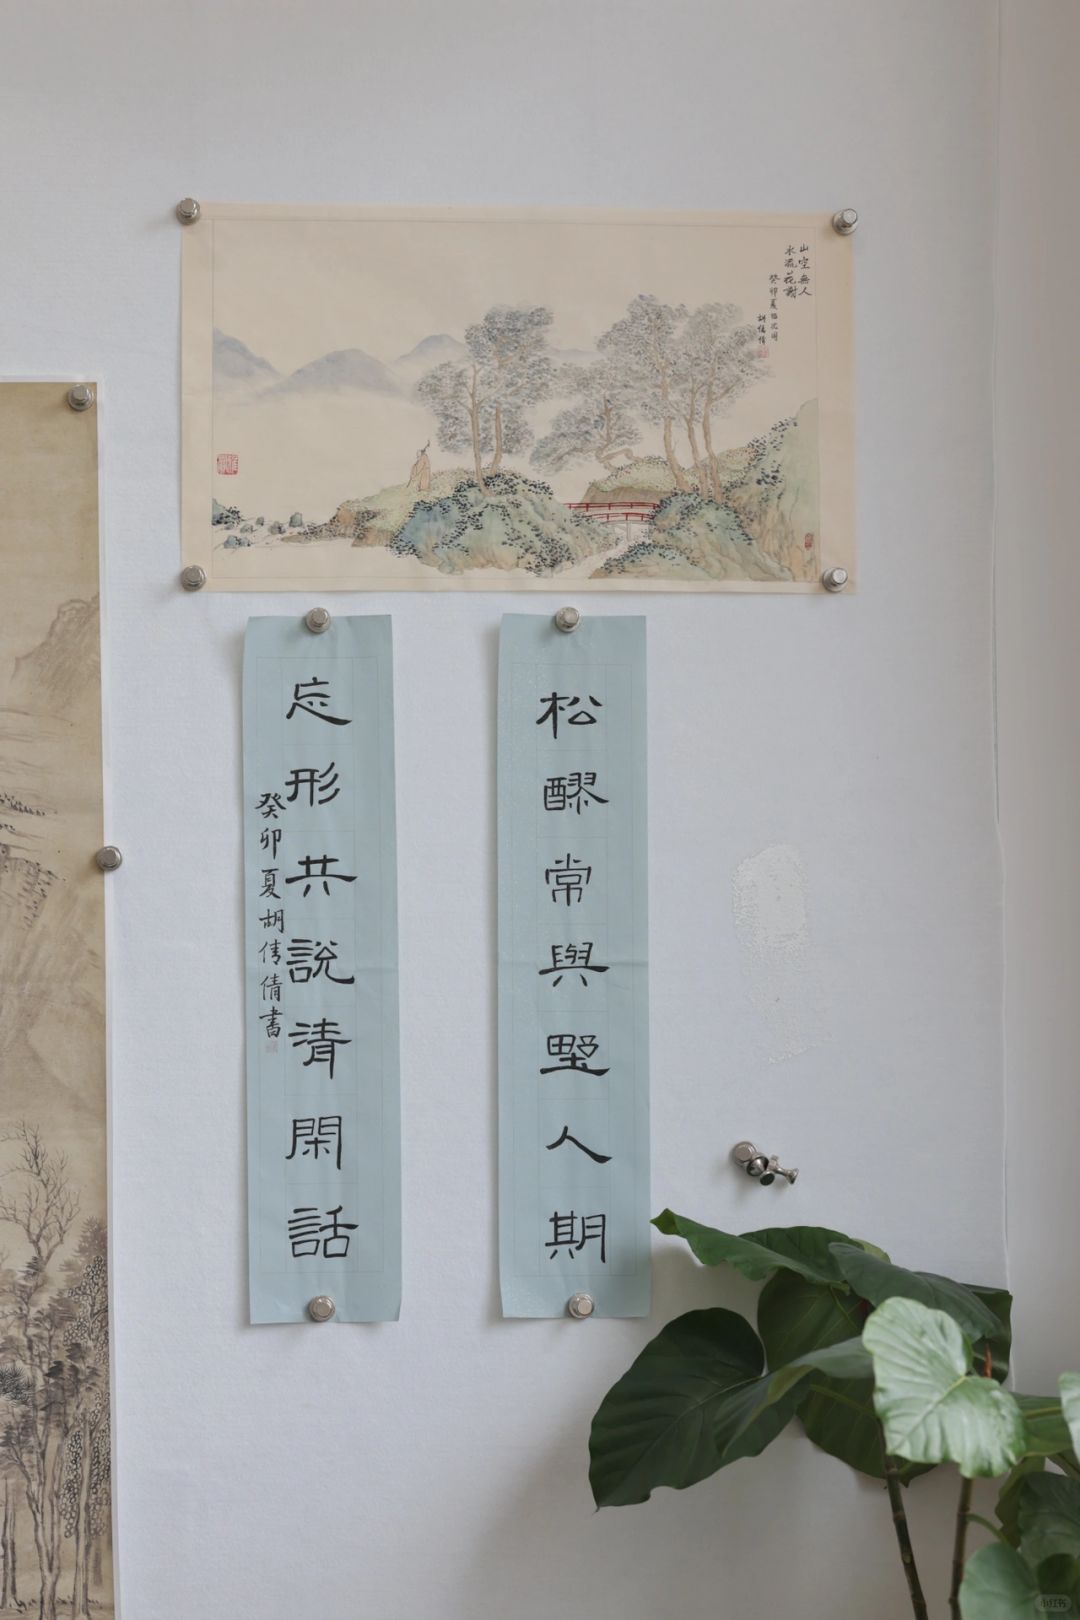 山空無人
水流花謝
癸卯夏臨沈周
胡倩倩
松醪常與墅人期
忘形共說清閑話
癸卯夏胡倩倩書
小红书